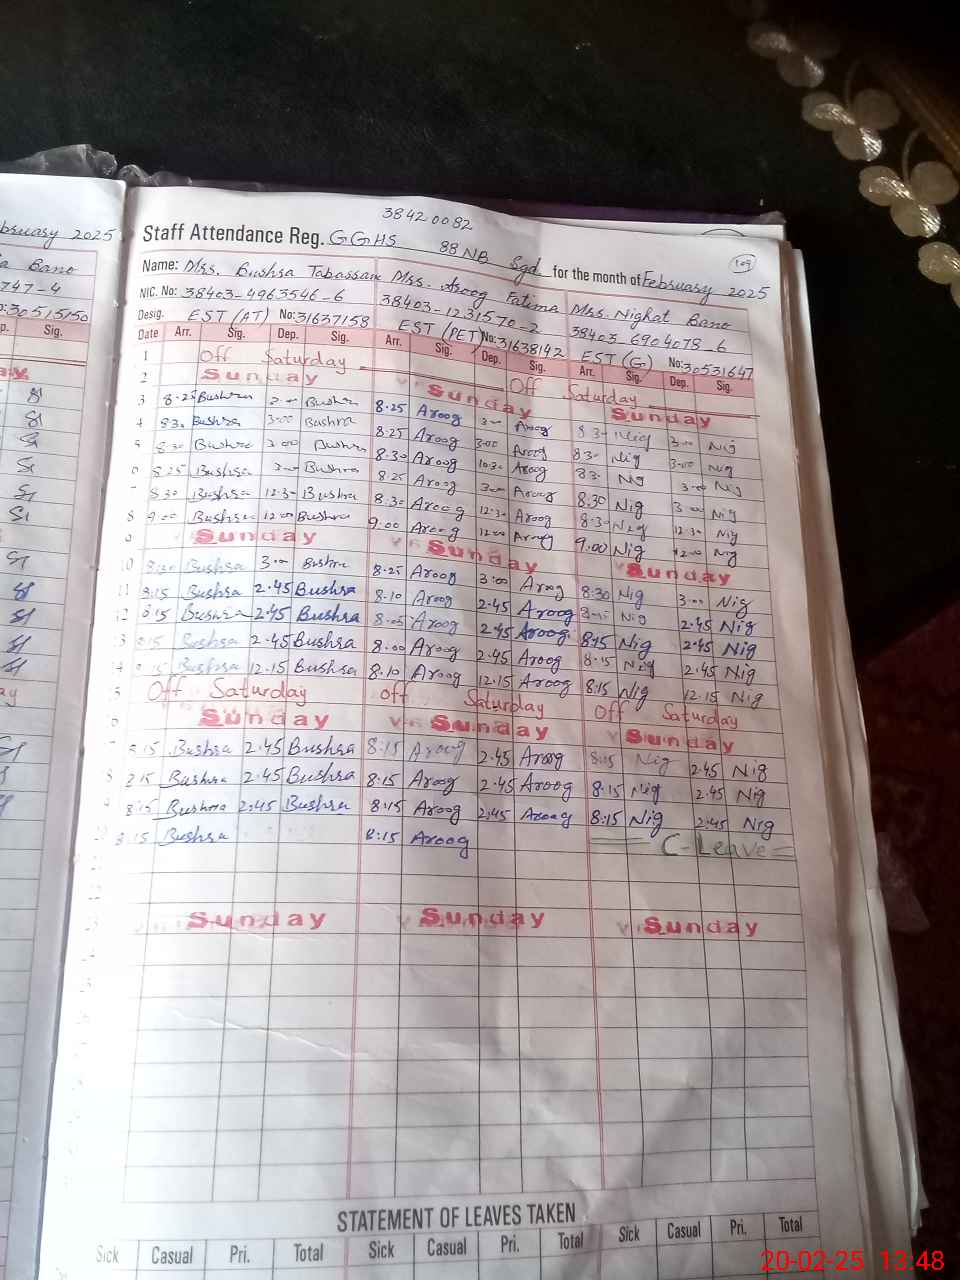 38420082
Staff Attendance Reg. GGHS 88 NB Sgd. for the month of February 2025
109
Name: Mrs. Bushra Tabassam Mrs. Aroog Fatima Mrs. Nighat Bano
NIC. No: 38403-4963546-6 38403-1231570-2 38403-6904078-6
Desig. EST (AT) No: 31637158 EST (PET) No: 31638142 EST (G) No: 30531647
Date Arr. Sig. Dep. Sig. Arr. Sig. Dep. Sig. Arr. Sig. Dep. Sig.
1 Off Saturday Off Saturday
2 Sunday Sunday Sunday
3 8.25 Bushra 3.00 Bushra 8.25 Aroog 3.00 Aroog 8.30 Nig 3.00 Nig
4 8.30 Bushra 3.00 Bushra 8.25 Aroog 3.00 Aroog 8.30 Nig 3.00 Nig
5 8.30 Bushra 3.00 Bushra 8.30 Aroog 10.30 Aroog 8.30 Nig 3.00 Nig
8.25 Bushra 3.00 Bushra 8.25 Aroog 3.00 Aroog 8.30 Nig 3.00 Nig
8.30 Bushra 12.30 Bushra 8.30 Aroog 12.30 Aroog 8.30 Nig 12.30 Nig
8 9.00 Bushra 12.00 Bushra 9.00 Aroog 12.00 Aroog 9.00 Nig 12.00 Nig
9 Sunday Sunday Sunday
10 8.30 Bushra 3.00 Bushra 8.25 Aroog 3:00 Aroog 8:30 Nig 3.00 Nig
11 8.15 Bushra 2.45 Bushra 8.10 Aroog 2.45 Aroog 8.15 Nig 2.45 Nig
12 8.15 Bushra 2.45 Bushra 8.05 Aroog 2.45 Aroog 8.15 Nig 2.45 Nig
8.15 Bushra 2.45 Bushra 8.00 Aroog 2.45 Aroog 8.15 Nig 2.45 Nig
8.15 Bushra 12.15 Bushra 8.10 Aroog 12.15 Aroog 8.15 Nig 12.15 Nig
Off Saturday Off Saturday Off Saturday
Sunday Sunday Sunday
8.15 Bushra 2.45 Bushra 8:15 Aroog 2.45 Aroog 8:15 Nig 2.45 Nig
8.15 Bushra 2.45 Bushra 8:15 Aroog 2.45 Aroog 8.15 Nig 2.45 Nig
8:15 Bushra 2:45 Bushra 8:15 Aroog 2:45 Aroog 8:15 Nig 2:45 Nig
20 8:15 Bushra 8:15 Aroog C-Leave
Sunday Sunday Sunday
STATEMENT OF LEAVES TAKEN
Sick Casual Pri. Total Sick Casual Pri. Total Sick Casual Pri. Total
20-02-25 13:48